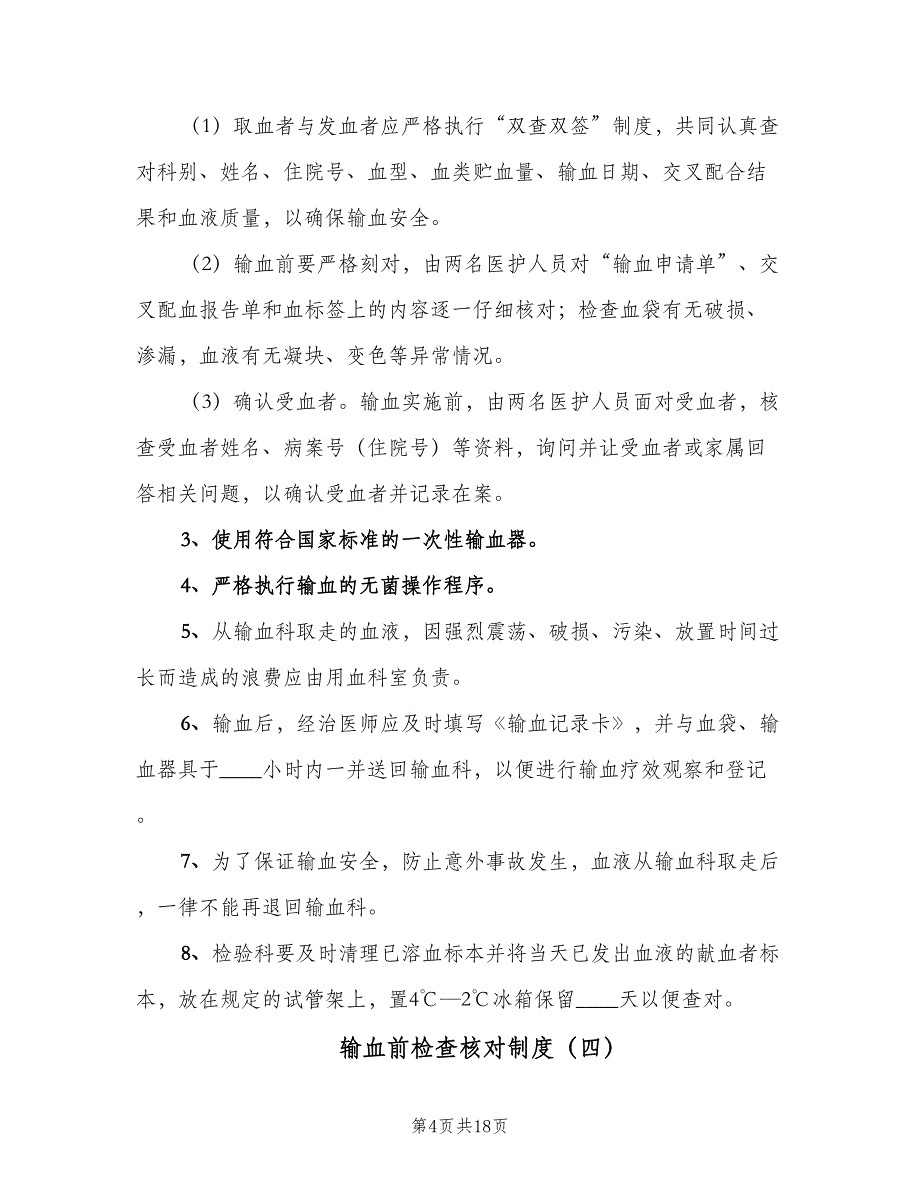 （1）取血者与发血者应严格执行“双查双签”制度，共同认真查
对科别、姓名、住院号、血型、血类贮血量、输血日期、交叉配合结
果和血液质量，以确保输血安全。
（2）输血前要严格刻对，由两名医护人员对“输血申请单”、交
叉配血报告单和血标签上的内容逐一仔细核对；检查血袋有无破损、
渗漏，血液有无凝块、变色等异常情况。
（3）确认受血者。输血实施前，由两名医护人员面对受血者，核
查受血者姓名、病案号（住院号）等资料，询问并让受血者或家属回
答相关问题，以确认受血者并记录在案。
3、使用符合国家标准的一次性输血器。
4、严格执行输血的无菌操作程序。
5、从输血科取走的血液，因强烈震荡、破损、污染、放置时间过
长而造成的浪费应由用血科室负责。
6、输血后，经治医师应及时填写《输血记录卡》，并与血袋、输
血器具于____小时内一并送回输血科，以便进行输血疗效观察和登记
。
7、为了保证输血安全，防止意外事故发生，血液从输血科取走后
，一律不能再退回输血科。
8、检验科要及时清理已溶血标本并将当天已发出血液的献血者标
本，放在规定的试管架上，置4℃—2℃冰箱保留____天以便查对。
输血前检查核对制度（四）
第4页共18页